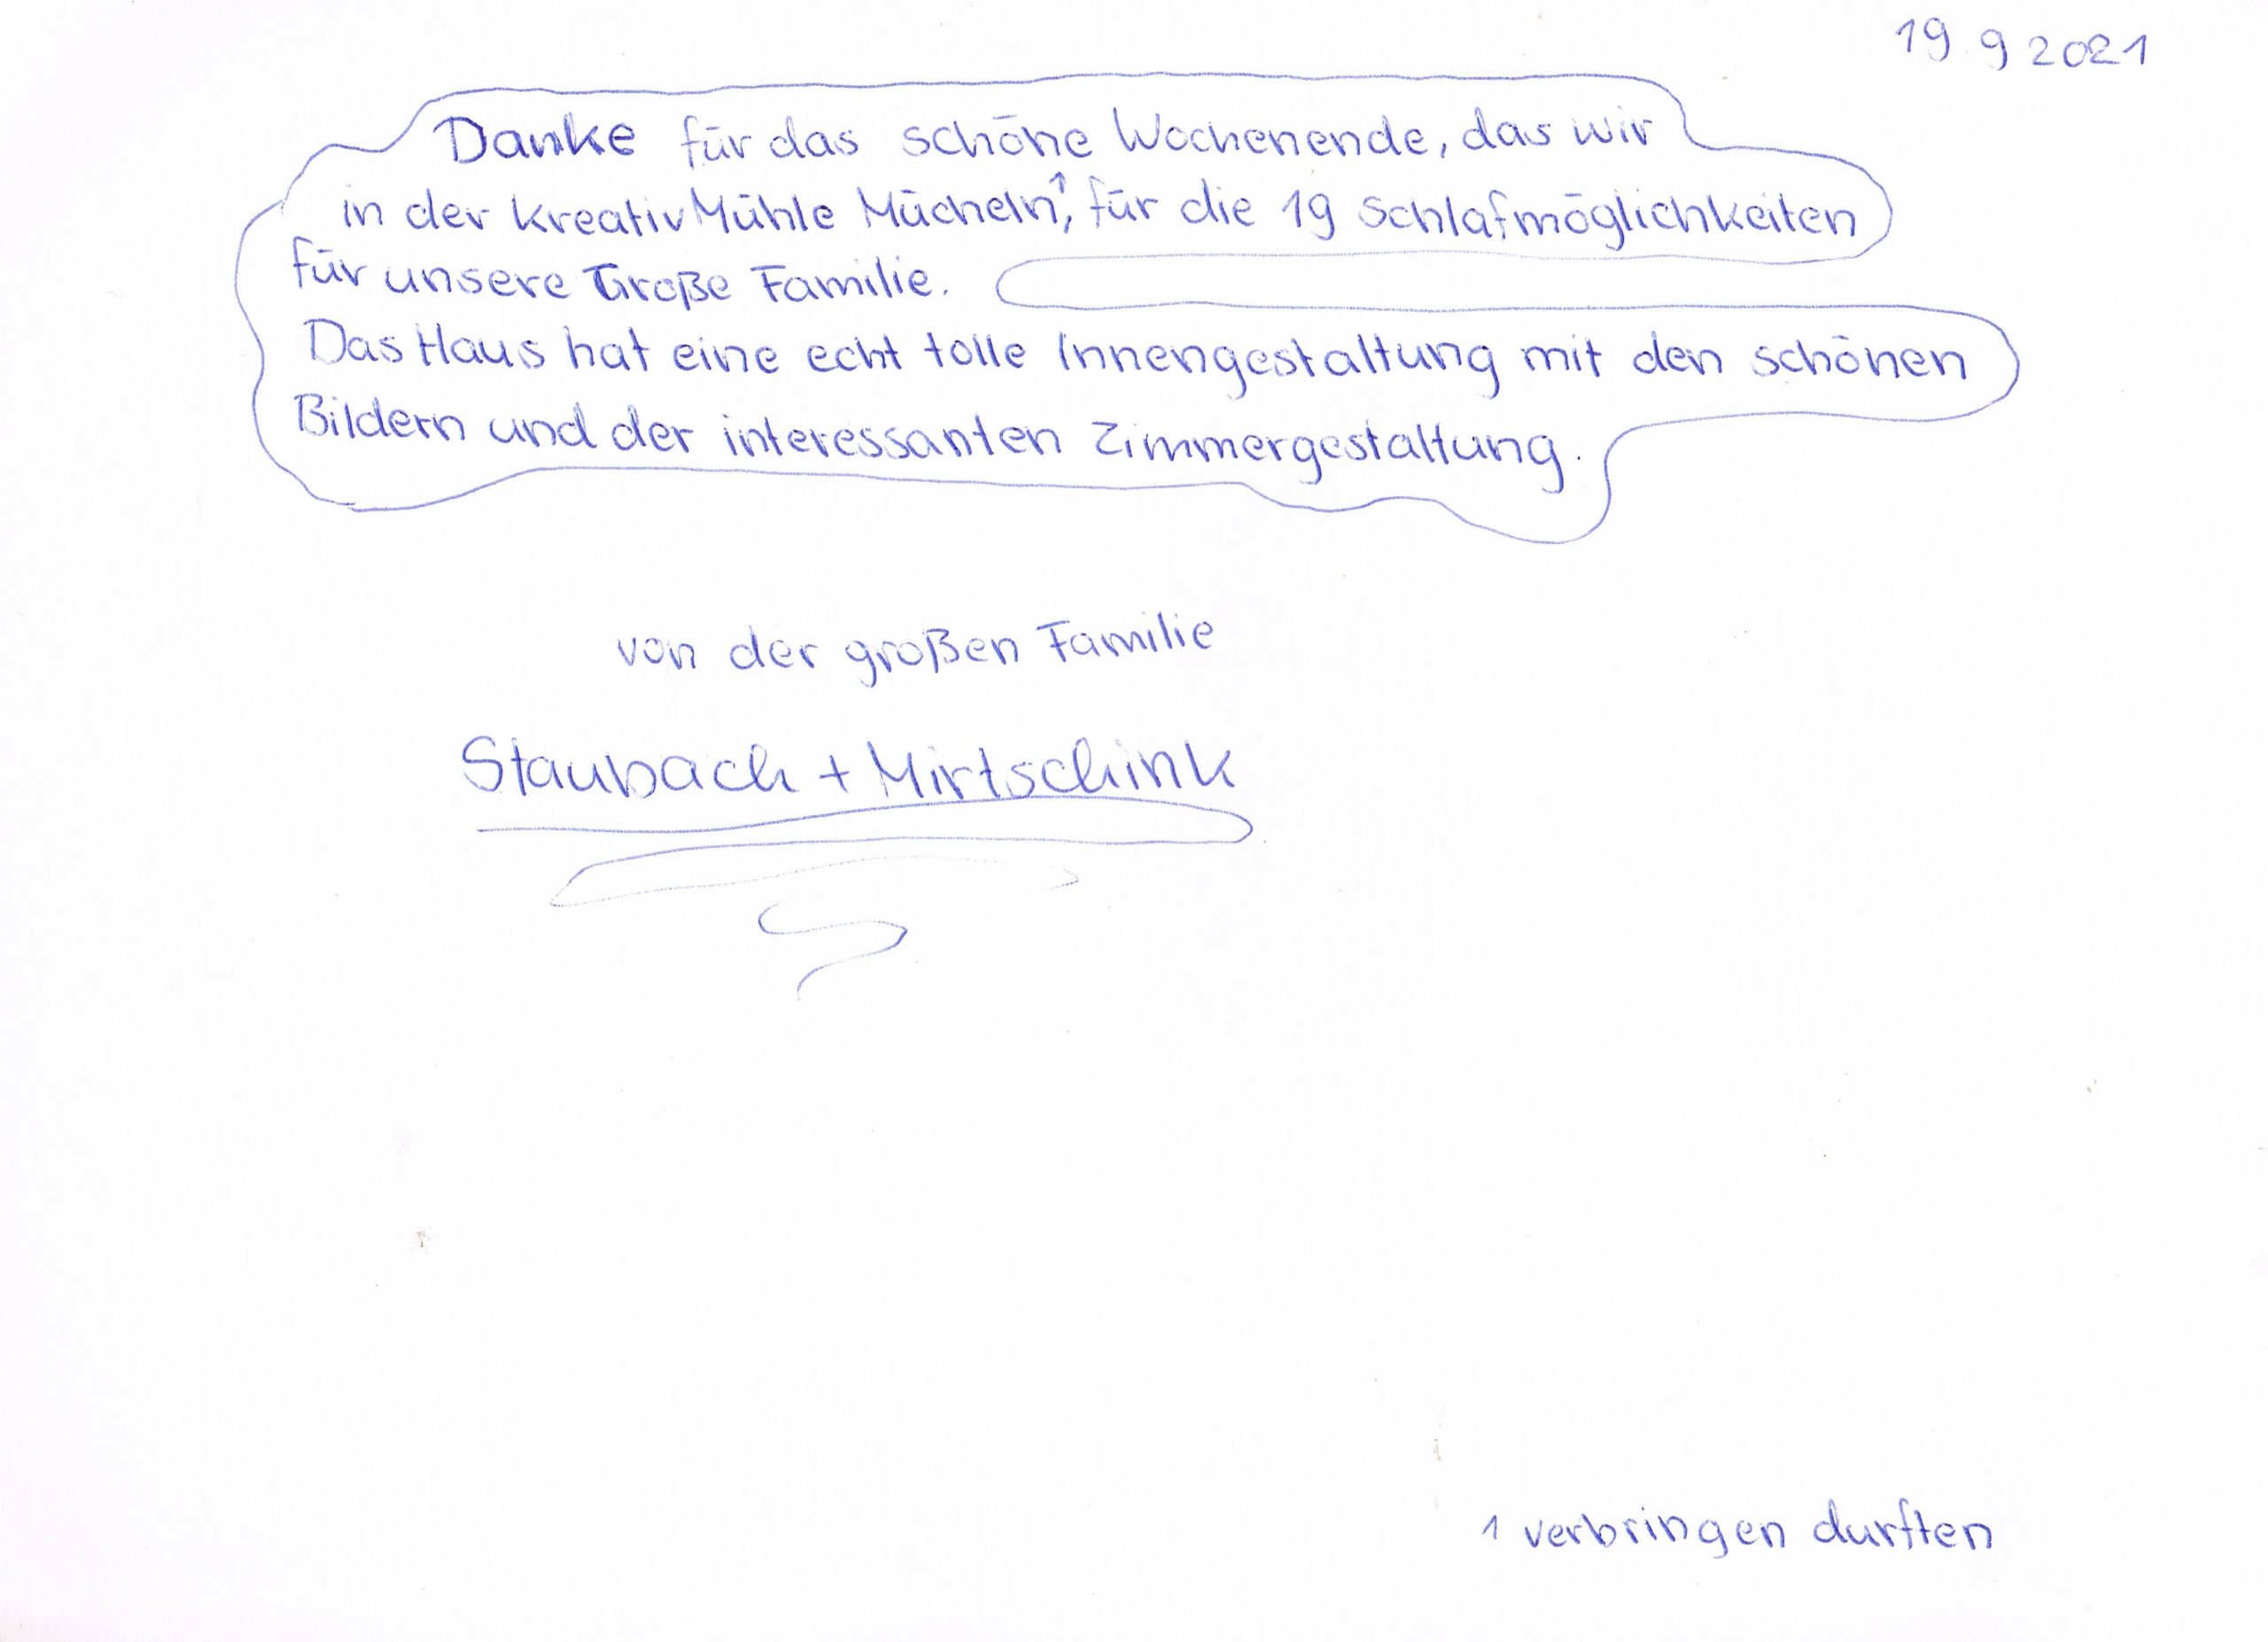 19 9 2021
Danke für das schöne Wochenende, das wir
in der KreativMühle Mücheln¹, für die 19 Schlafmöglichkeiten
für unsere Große Familie.
Das Haus hat eine echt tolle Innengestaltung mit den schönen
Bildern und der interessanten Zimmergestaltung.
von der großen Familie
Staubach + Mirtschink
1 verbringen durften